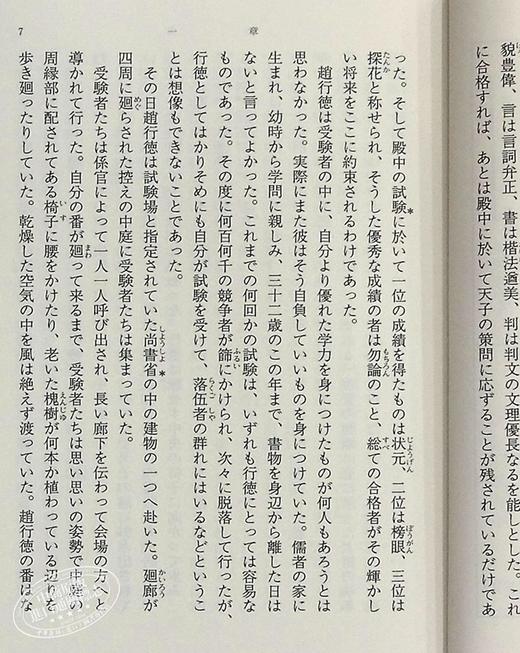 貌豊偉、言は言詞弁正、書は楷法遒美、判は判文の文理優長なるを能しとした。これ
に合格すれば、あとは殿中に於いて天子の策問に応ずることが残されているだけであ
一 章
7
* じょうげん ぼうがん
った。そして殿中の試験に於いて一位の成績を得たものは状元、二位は榜眼、三位は
たんか もちろん すべ
探花と称せられ、そうした優秀な成績の者は勿論のこと、総ての合格者がその輝かし
い将来をここに約束されるわけであった。
趙行徳は受験者の中に、自分より優れた学力を身につけたものが何人もあろうとは
思わなかった。実際にまた彼はそう自負していいものを身につけていた。儒者の家に
生まれ、幼時から学問に親しみ、三十二歳のこの年まで、書物を身辺から離した日は
ないと言ってよかった。これまでの何回かの試験は、いずれも行徳にとっては容易な
ふるい
ものであった。その度に何百何千の競争者が篩にかけられ、次々に脱落して行ったが、
らくごしゃ
行徳としてはかりそめにも自分が試験を受けて、落伍者の群れにはいるなどというこ
とは想像もできないことであった。
しょうしょ * かいろう
その日趙行徳は試験場と指定されていた尚書省の中の建物の一つへ赴いた。廻廊が
めぐ
四周に廻らされた控えの中庭に受験者たちは集まっていた。
受験者たちは係官によって一人一人呼び出され、長い廊下を伝わって会場の方へと
まわ
導かれて行った。自分の番が廻って来るまで、受験者たちは思い思いの姿勢で中庭の
いす えんじゅ
周縁部に配されてある椅子に腰をかけたり、老いた槐樹が何本か植わっている辺りを
歩き廻ったりしていた。乾燥した空気の中を風は絶えず渡っていた。趙行徳の番はな